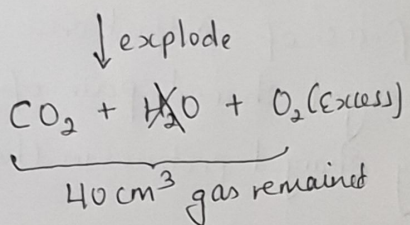 ↓ explode
CO₂ + H₂O + O₂ (Excess)
40 cm³ gas remained